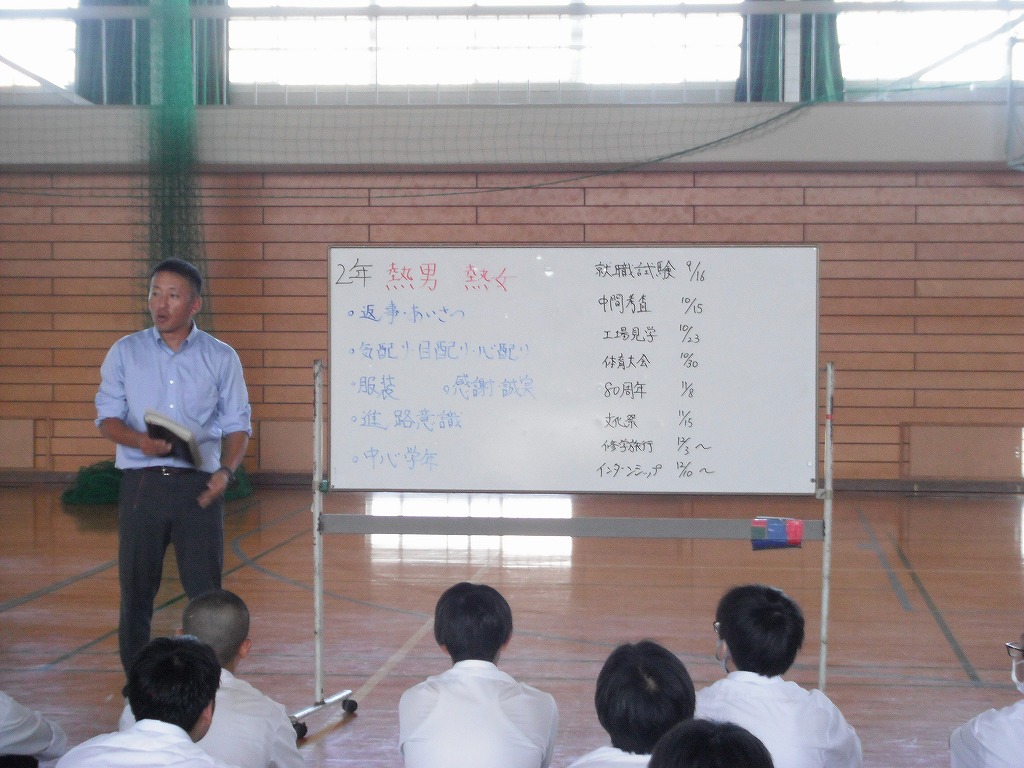 2年 熱男 熱女
○返事・あいさつ
○気配り・目配り・心配り
○服装 ○感謝・誠実
○進路意識
○中心学年
就職試験 9/16
中間考査 10/15
工場見学 10/23
体育大会 10/30
80周年 11/8
文化祭 11/15
修学旅行 12/3〜
インターンシップ 12/10〜